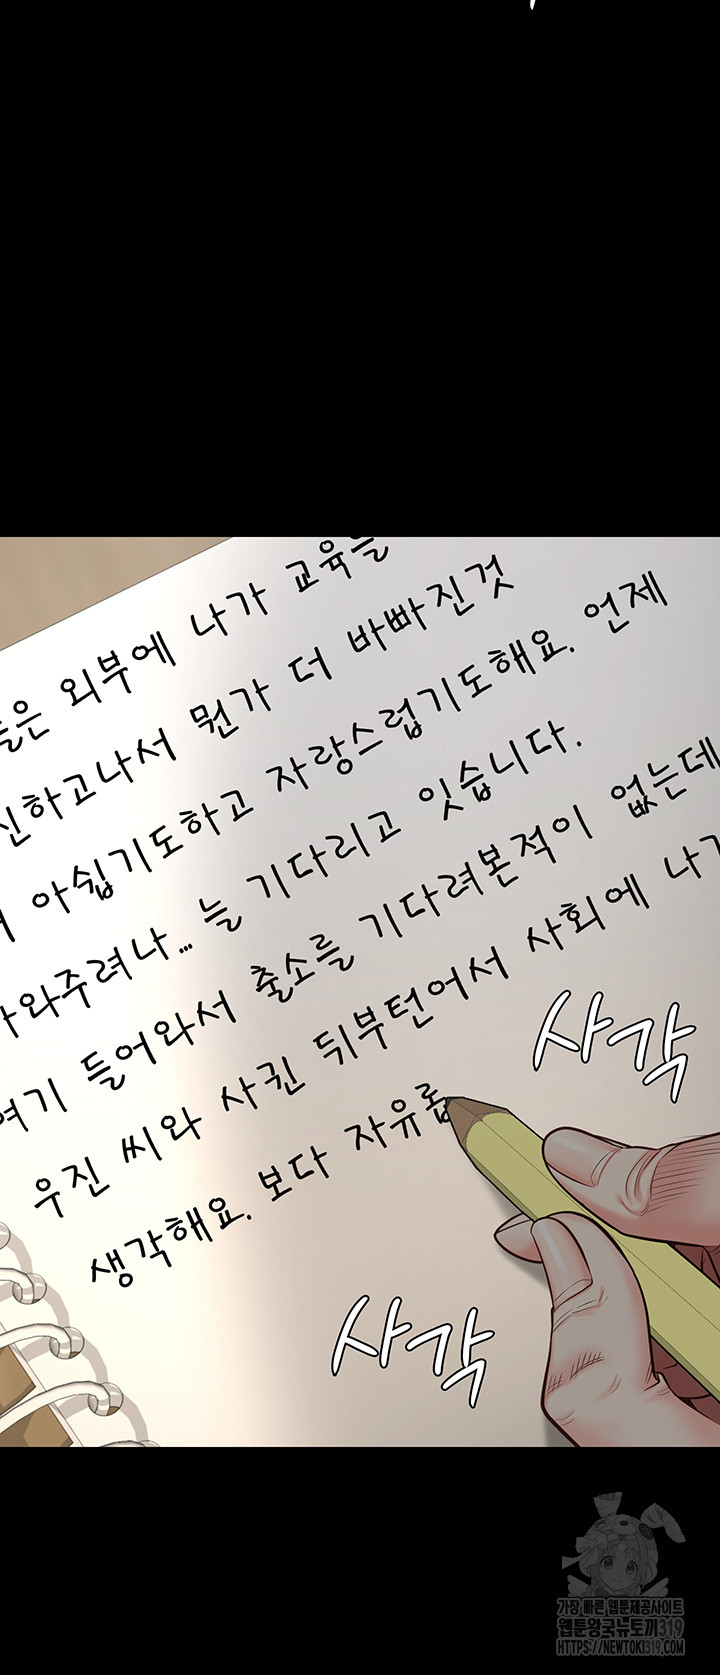 나가 교육을
들은 외부에
신하고나서 뭔가 더 바빠진것
아쉽기도하고 자랑스럽기도해요. 언제
와주려나... 늘 기다리고 잇습니다.
여기 들어와서 출소를 기다려본적이 없는데
우진 씨와 사귄 뒤부턴어서 사회에 나가
생각해요. 보다 자유롭
사각
사각
가장 빠른 웹툰제공사이트
웹툰왕국뉴토끼319
HTTPS://NEWTOKI319.COM